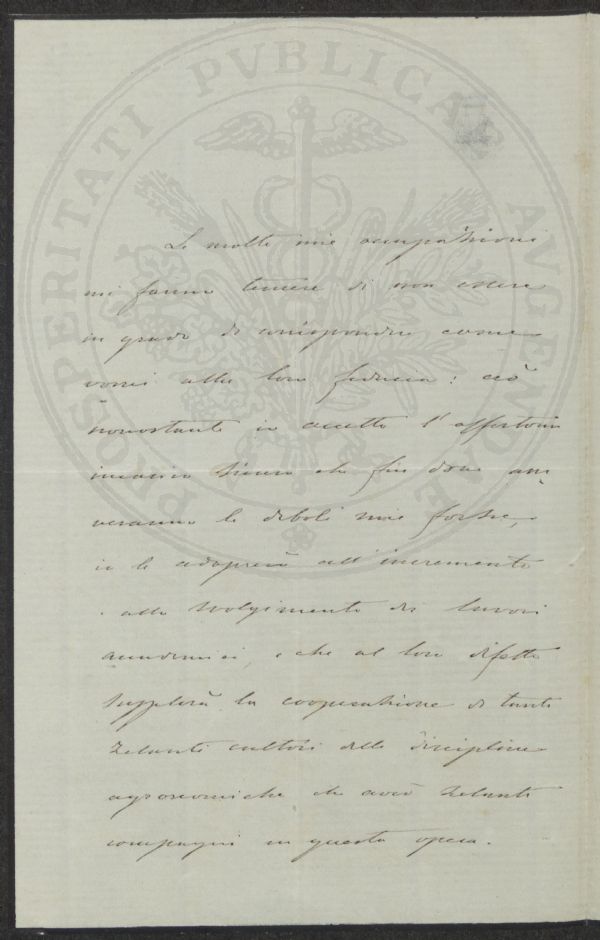 PROSPERITATI PVBLICAE AVGENDAE
Le molte mie occupazioni
mi fanno temere di non essere
in grado di corrispondere come
vorrei alla loro fiducia: ciò
nonostante io accetto l'offertomi
incarico sicuro che fin dove arri
veranno le deboli mie forze,
io le adoprerò all'incremento
e allo svolgimento dei lavori
accademici, e che al loro difetto
supplirà la cooperazione di tanti
zelanti cultori delle discipline
agronomiche che avrò zelanti
compagni in questa opera.